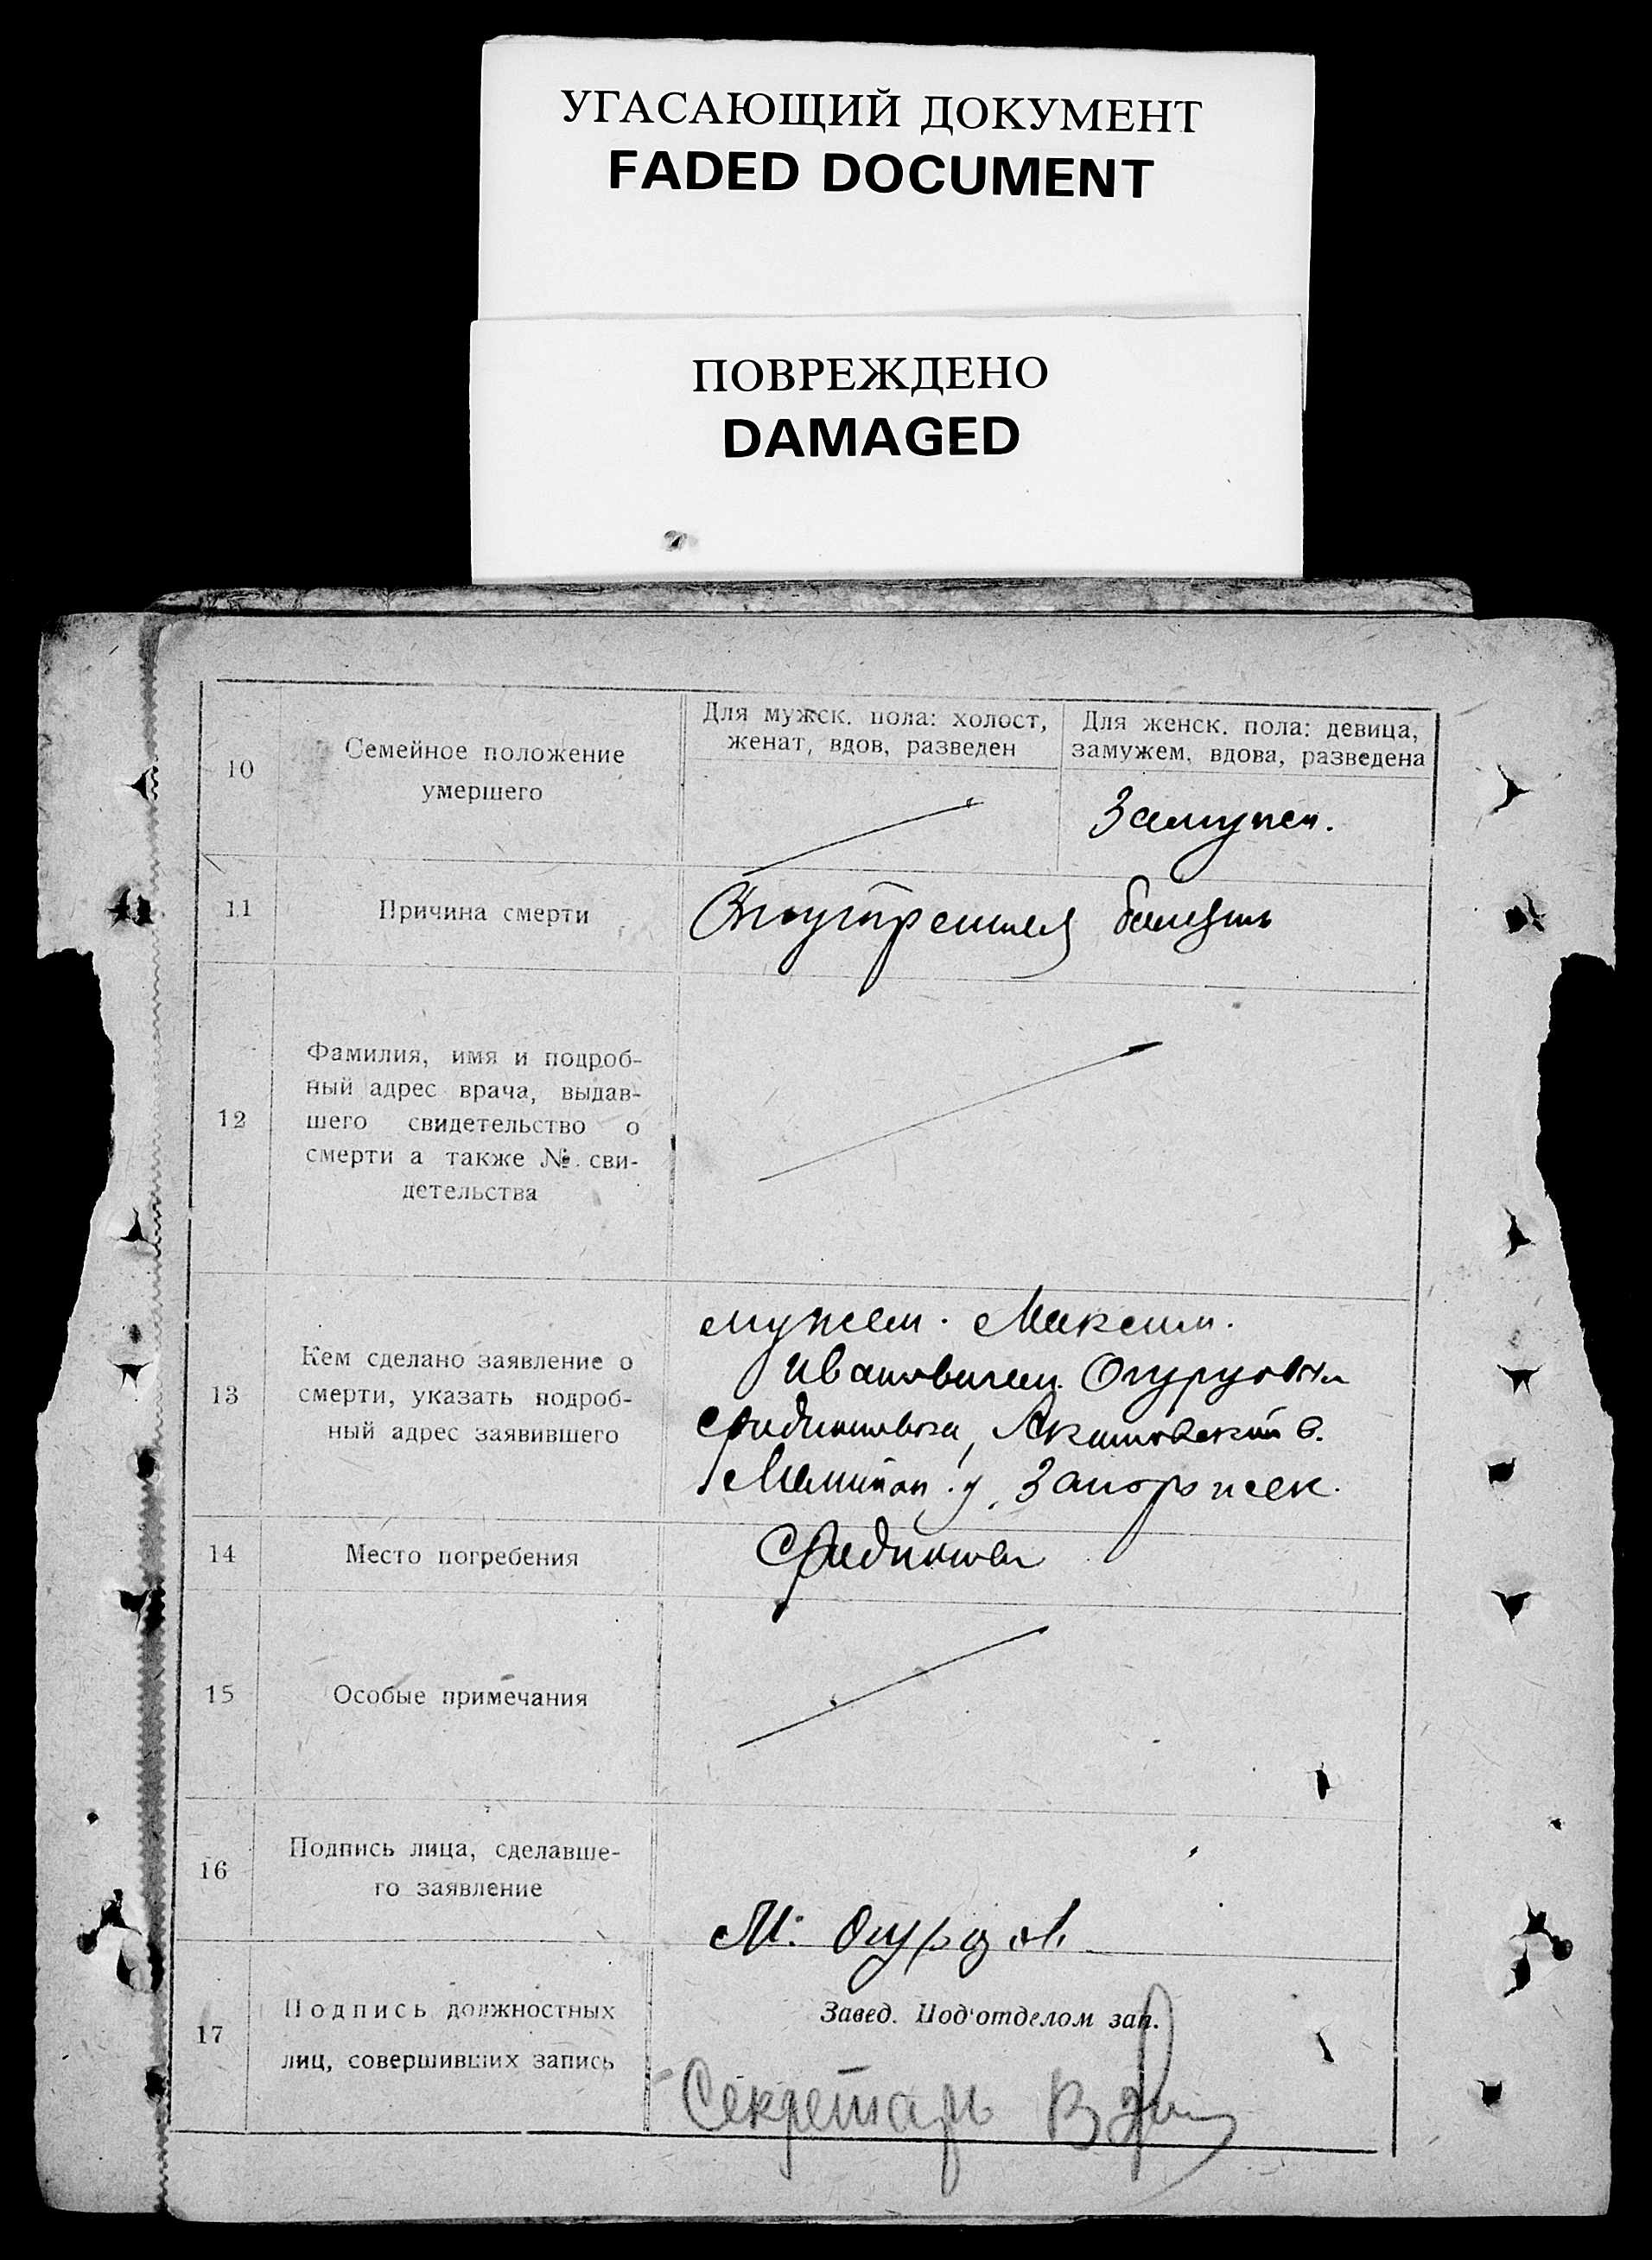 УГАСАЮЩИЙ ДОКУМЕНТ
FADED DOCUMENT
ПОВРЕЖДЕНО
DAMAGED
10
Семейное положение
умершего
Для мужск. пола: холост,
женат, вдов, разведен
Для женск. пола: девица,
замужем, вдова, разведена
Замужем.
11
Причина смерти
Внутренния
12
Фамилия, имя и подроб-
ный адрес врача, выдав-
шего свидетельство о
смерти а также № сви-
детельства
13
Кем сделано заявление о
смерти, указать подроб-
ный адрес заявившего
мужем. Максим.
Ивановичем Огурцовым
Акимовский в.
у. Запорожск.
14
Место погребения
15
Особые примечания
16
Подпись лица, сделавше-
го заявление
М. Огурцов
17
Подпись должностных
лиц, совершивших запись
Завед. Под'отделом зап.
Секретарь